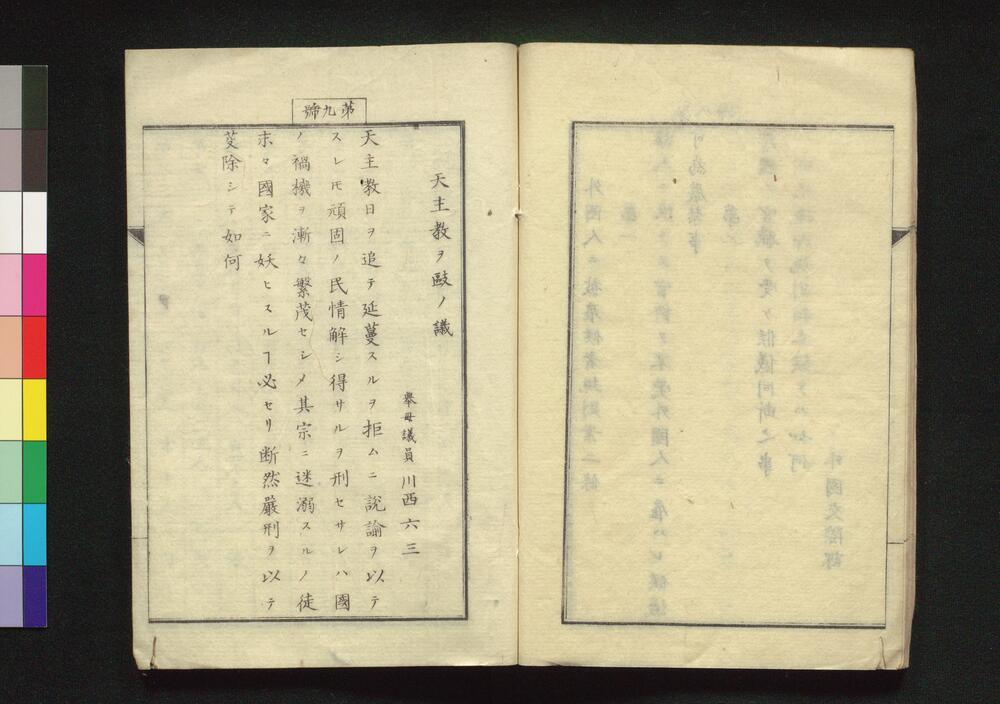 第九號
天主教ヲ毆ノ議
擧母議員川西六三
天主教日ヲ追テ延蔓スルヲ拒ムニ説諭ヲ以テ
スレ𪜈頑固ノ民情解シ得サルヲ刑セサレハ國
ノ禍機ヲ漸々繁茂セシメ其宗ニ迷溺スルノ徒
末々國家ニ妖ヒスルヿ必セリ断然嚴刑ヲ以テ
芟除シテ如何